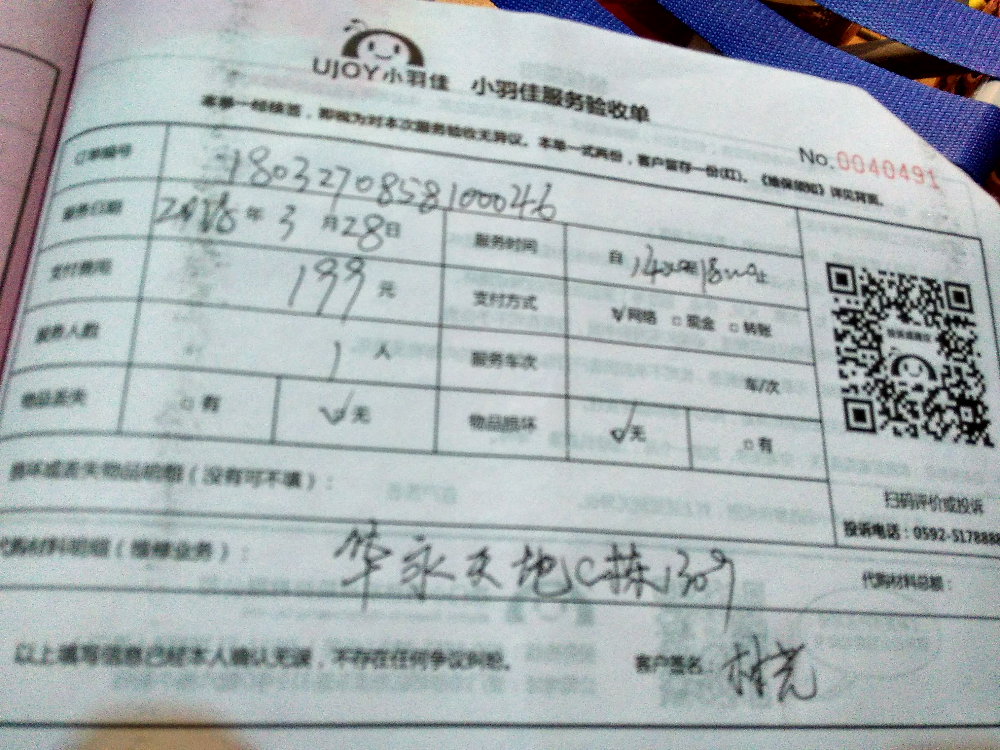 UJOY小羽佳 小羽佳服务验收单
本单一经接签，即视为对本次服务验收无异议。本单一式两份，客户留存一份(红)。《维保须知》详见背面。
No.0040491
订单编号 1803270858100046
服务日期 2018年3月28日 服务时间 自14:00至18:00止
支付费用 199元 支付方式 √网络 □现金 □转账
服务人数 1人 服务车次 车/次
物品丢失 □有 √无 物品损坏 √无 □有
损坏或丢失物品明细（没有可不填）：
扫码评价或投诉
投诉电话：0592-5178888
代购材料明细（维修业务）： 华永天地C栋1309 代购材料总额：
以上填写信息已经本人确认无误，不存在任何争议纠纷。 客户签名：